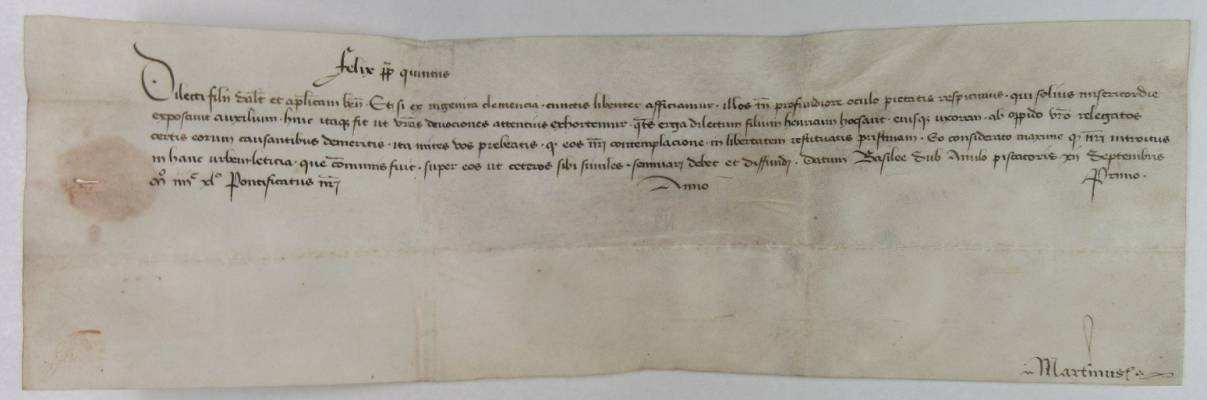 Felix pp quintus
Dilecti filii salt et aplicam ben. Et si ex ingenita clemencia cunctis libenter afficiamur. illos tn profundiore oculo pietatis respicimus. qui solius misericordie
exposcunt auxilium. hinc itaque fit ut vras devociones attentius exhortemur. erga dilectum filium henricum eiusque uxorem. ab oppido vro relegatos
certis eorum causantibus demeritis. ita mites vos prebeatis. q eos nri contemplacione in libertatem restituatis pristinam. Eo considerato maxime q nri introitus
in hanc urbem leticia. que comunis fuit. super eos ut ceteros sibi similes. seminari debet et diffundi. Datum Basilee Sub Anulo piscatoris xii Septembris
mo iiiic xlo Pontificatus nri Anno Primo.
Martinus